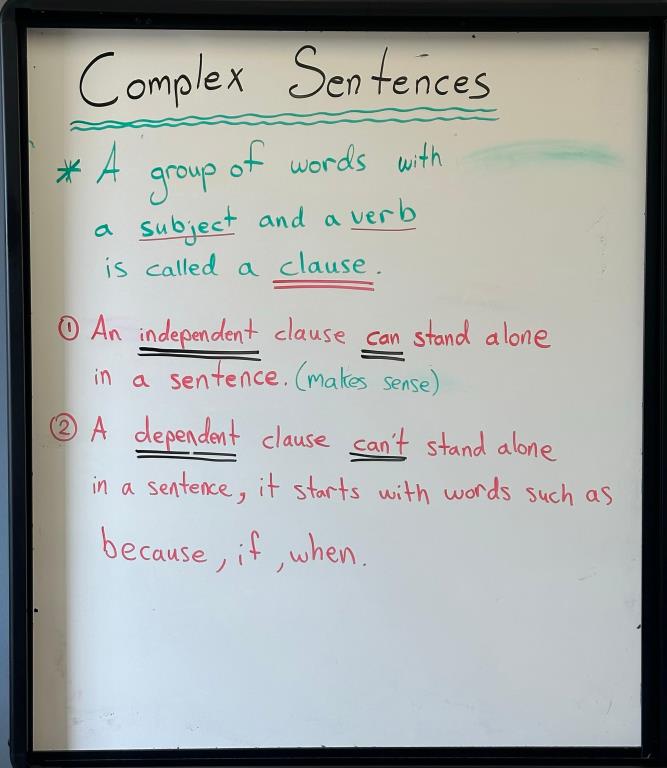 Complex Sentences
* A group of words with
a subject and a verb
is called a clause.
① An independent clause can stand alone
in a sentence. (makes sense)
② A dependent clause can't stand alone
in a sentence, it starts with words such as
because, if, when.